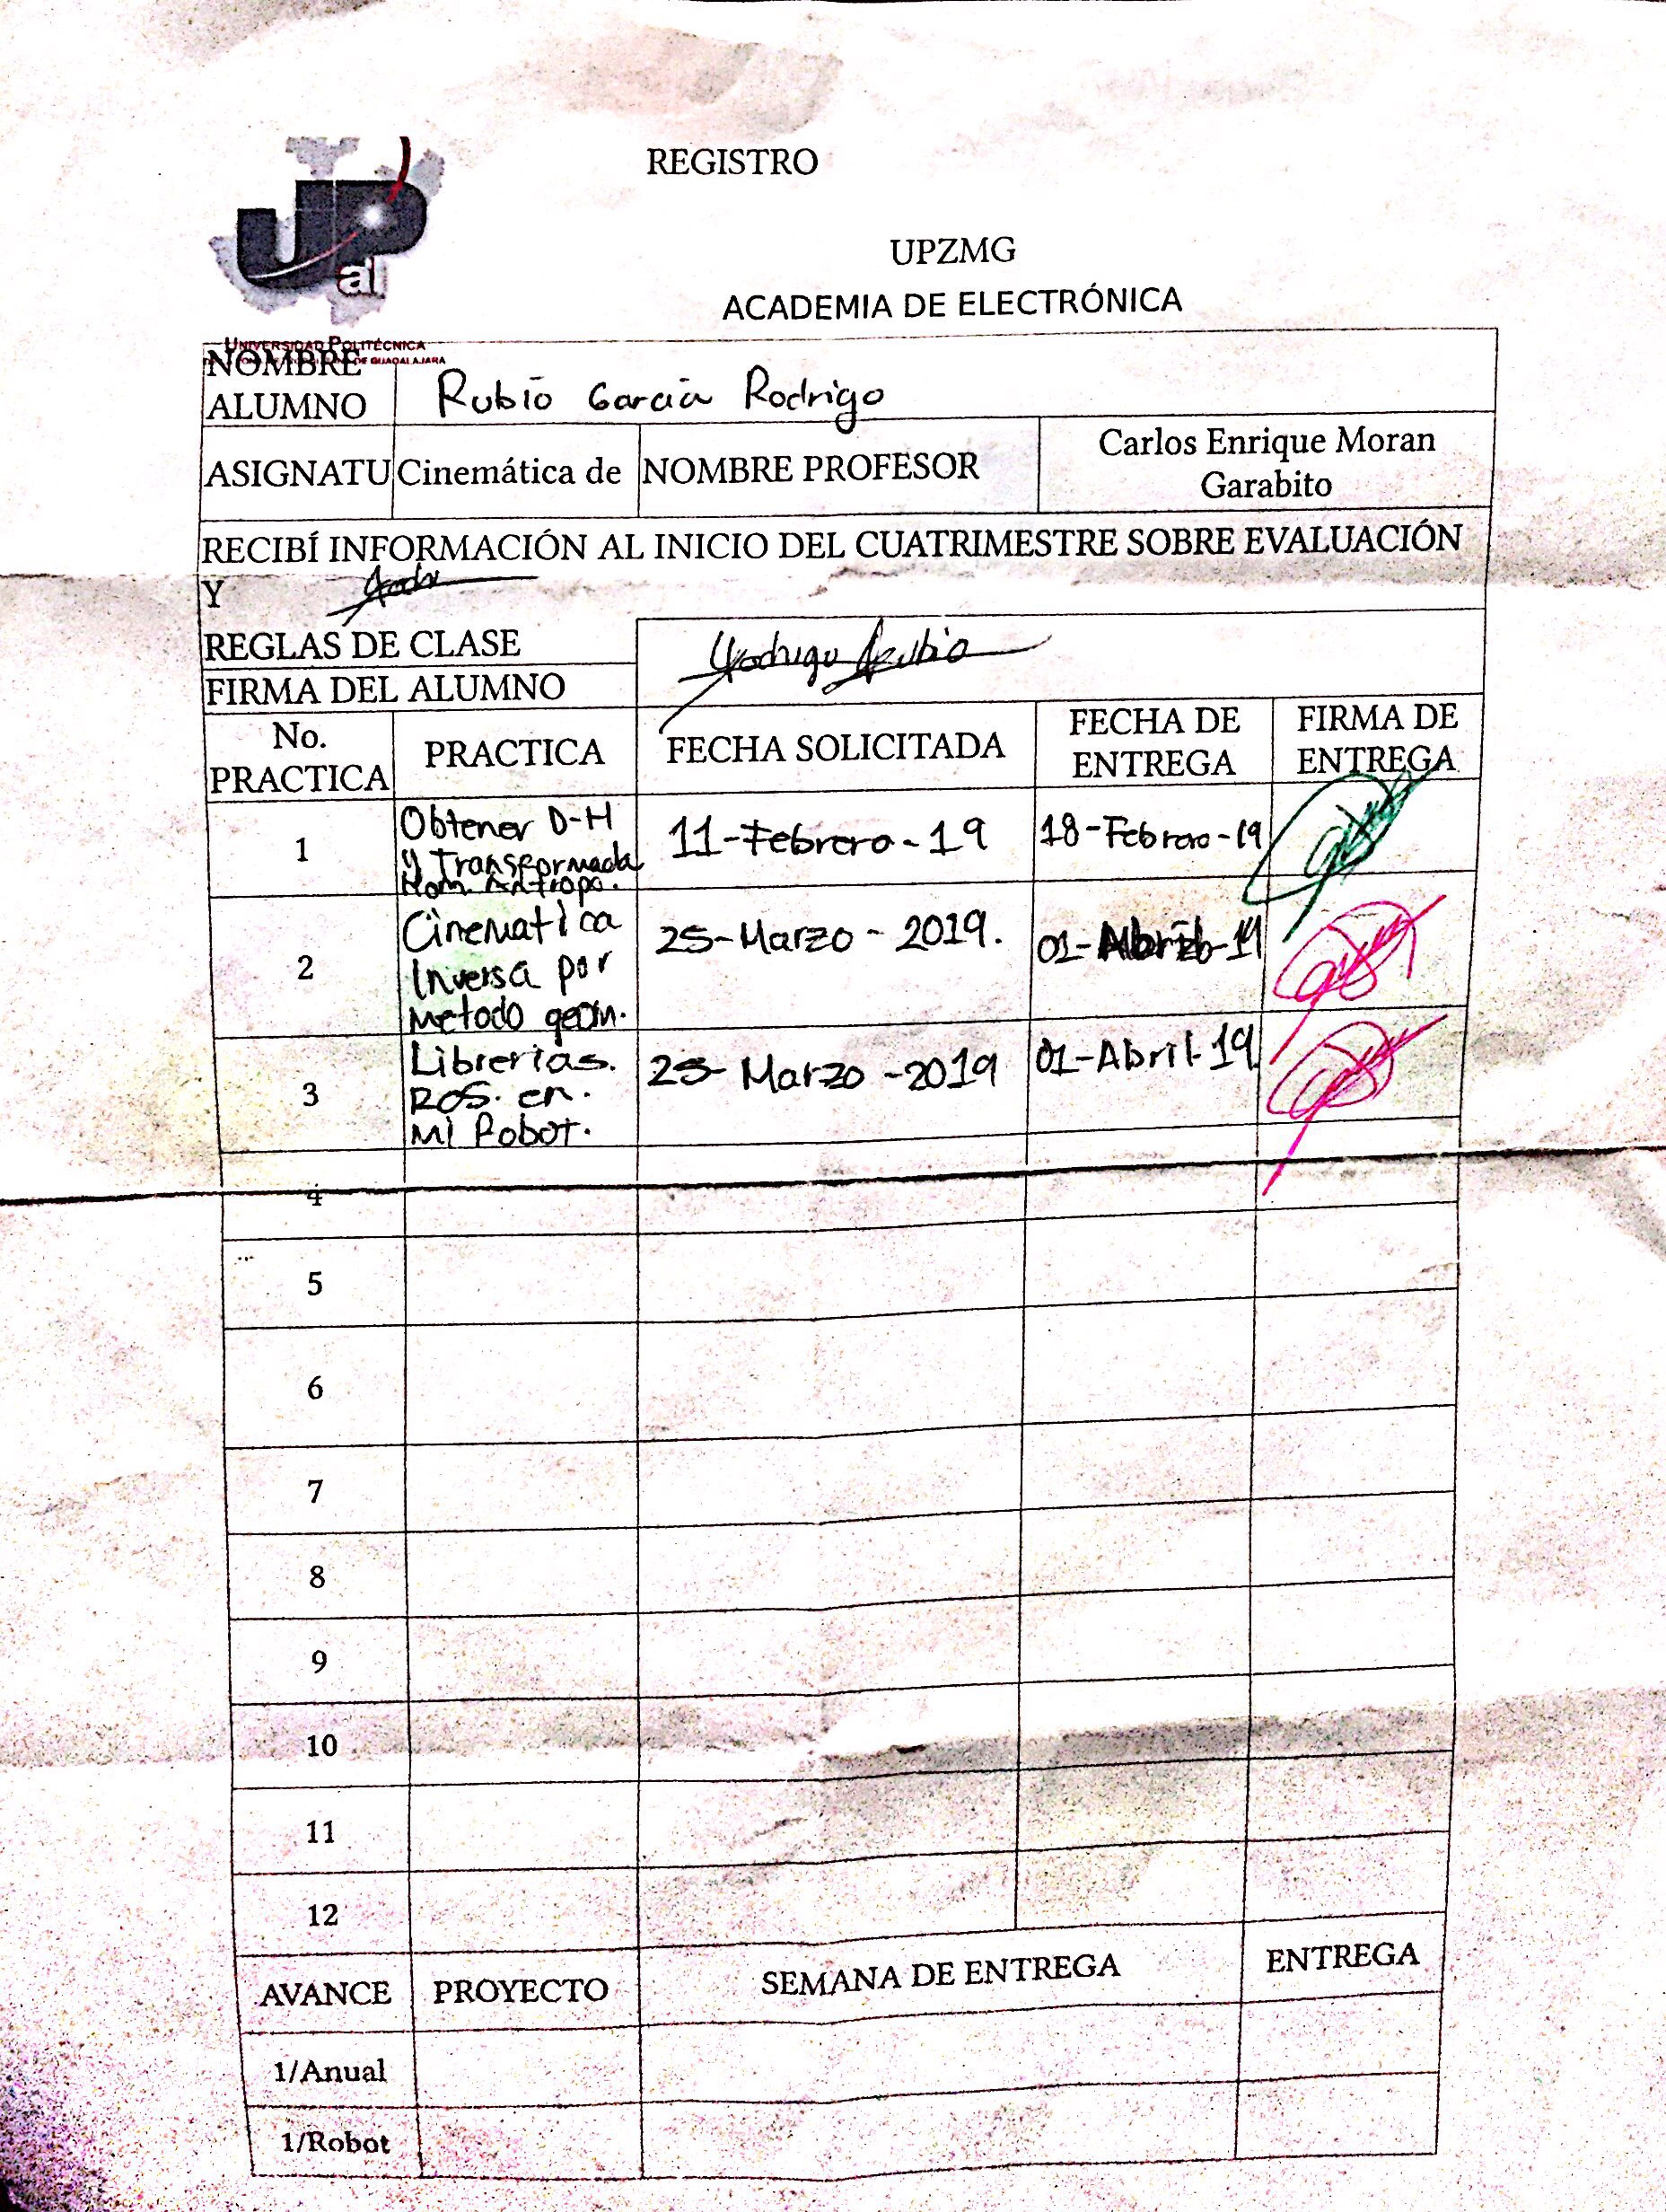 REGISTRO
UPZMG
ACADEMIA DE ELECTRÓNICA
UP
al
UNIVERSIDAD POLITÉCNICA
DE GUADALAJARA
NOMBRE
ALUMNO
Rubio Garcia Rodrigo
ASIGNATU
Cinemática de
NOMBRE PROFESOR
Carlos Enrique Moran
Garabito
RECIBÍ INFORMACIÓN AL INICIO DEL CUATRIMESTRE SOBRE EVALUACIÓN
Y
REGLAS DE CLASE
FIRMA DEL ALUMNO
Rodrigo Rubio
No.
PRACTICA
PRACTICA
FECHA SOLICITADA
FECHA DE
ENTREGA
FIRMA DE
ENTREGA
1
Obtener D-H
y Transformada
Hom. Antropo.
11-Febrero-19
18-Febrero-19
2
Cinematica
Inversa por
Metodo geom.
25-Marzo-2019.
01-Abril-19
3
Librerias.
ROS. en.
Mi Robot.
25-Marzo-2019
01-Abril-19
4
5
6
7
8
9
10
11
12
AVANCE
PROYECTO
SEMANA DE ENTREGA
ENTREGA
1/Anual
1/Robot